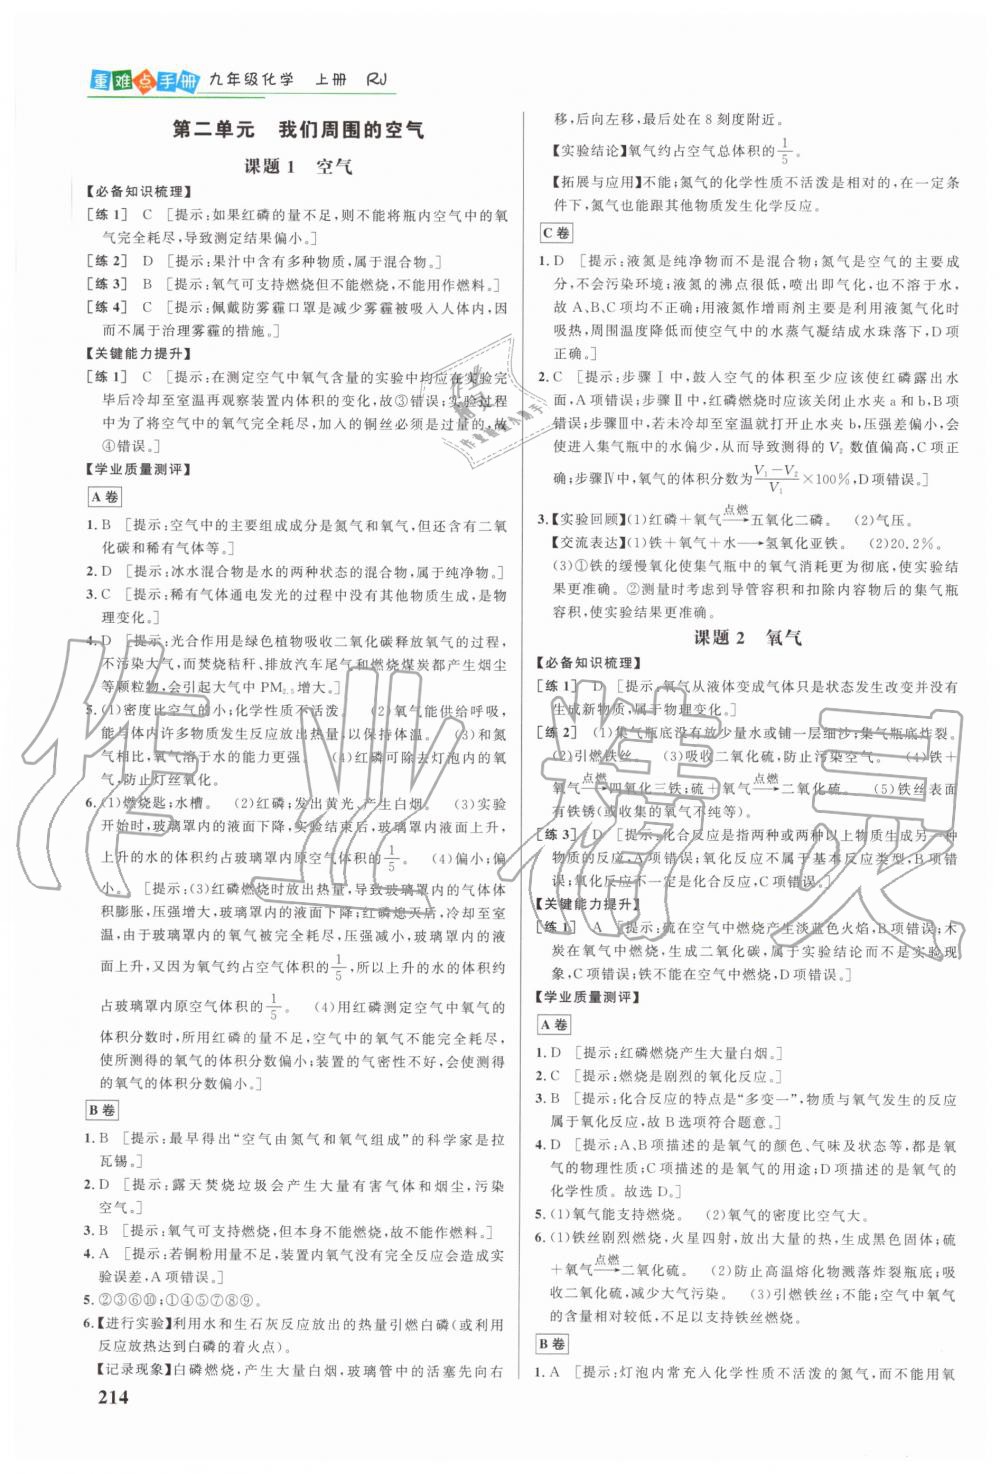 重难点手册 九年级化学 上册 RJ
第二单元 我们周围的空气
课题1 空气
【必备知识梳理】
[练1] C [提示:如果红磷的量不足,则不能将瓶内空气中的氧
气完全耗尽,导致测定结果偏小。]
[练2] D [提示:果汁中含有多种物质,属于混合物。]
[练3] B [提示:氧气可支持燃烧但不能燃烧,不能用作燃料。]
[练4] C [提示:佩戴防雾霾口罩是减少雾霾被吸入人体内,因
而不属于治理雾霾的措施。]
【关键能力提升】
[练1] C [提示:在测定空气中氧气含量的实验中均应在实验完
毕后冷却至室温再观察装置内体积的变化,故③错误;实验过程
中为了将空气中的氧气完全耗尽,加入的铜丝必须是过量的,故
④错误。]
【学业质量测评】
A卷
1. B [提示:空气中的主要组成成分是氮气和氧气,但还含有二氧
化碳和稀有气体等。]
2. D [提示:冰水混合物是水的两种状态的混合物,属于纯净物。]
3. C [提示:稀有气体通电发光的过程没有其他物质生成,是物
理变化。]
4. D [提示:光合作用是绿色植物吸收二氧化碳释放氧气的过程,
不污染大气,而焚烧秸秆、排放汽车尾气和燃烧煤炭都产生烟尘
等颗粒物,会引起大气中PM2.5增大。]
5. (1)密度比空气的小;化学性质不活泼。 (2)氧气能供给呼吸,
能与体内许多物质发生反应放出热量,以保持体温。 (3)和氮
气相比,氧气溶于水的能力更强。 (4)红磷可除去灯泡内的氧气,
防止灯丝氧化。
6. (1)燃烧匙;水槽。 (2)红磷;发出黄光、产生白烟。 (3)实验
开始时,玻璃罩内的液面下降,实验结束后,玻璃罩内液面上升,
上升的水的体积约占玻璃罩内原空气体积的1/5。 (4)偏小;偏
小。 [提示:(3)红磷燃烧时放出热量,导致玻璃罩内的气体体
积膨胀,压强增大,玻璃罩内的液面下降;红磷熄灭后,冷却至室
温,由于玻璃罩内的氧气被耗尽,压强减小,故玻璃罩内的液
面上升,又因为氧气约占空气体积的1/5,所以上升的水的体积约
占玻璃罩内原空气体积的1/5。 (4)用红磷测定空气中氧气的
体积分数时,所用红磷的量不足,空气中的氧气不能完全耗尽,
使所测得的氧气的体积分数偏小;装置的气密性不好,会使测得
的氧气的体积分数偏小。]
B卷
1. B [提示:最早得出“空气由氮气和氧气组成”的科学家是拉
瓦锡。]
2. D [提示:露天焚烧垃圾会产生大量有害气体和烟尘,污染
空气。]
3. B [提示:氧气可支持燃烧,但本身不能燃烧,故不能作燃料。]
4. A [提示:若铜粉用量不足,装置内氧气没有完全反应会造成实
验误差,A项错误。]
5. ②③⑥⑩;①④⑤⑦⑧⑨。
6. 【进行实验】利用水和生石灰反应放出的热量引燃白磷(或利用
反应放热达到白磷的着火点)。
【记录现象】白磷燃烧,产生大量白烟,玻璃管中的活塞先向右
214
移,后向左移,最后处在8刻度附近。
【实验结论】氧气约占空气总体积的1/5。
【拓展与应用】不能;氮气的化学性质不活泼是相对的,在一定条
件下,氮气也能跟其他物质发生化学反应。
C卷
1. D [提示:液氮是纯净物而不是混合物;氮气是空气的主要成
分,不会污染环境;液氮的沸点很低,喷出即气化,也不溶于水,
故A、B、C项均不正确;用液氮作增雨剂主要是利用液氮气化时
吸热,周围温度降低而使空气中的水蒸气凝结成水珠落下,D项
正确。]
2. C [提示:步骤Ⅰ中,鼓入空气的体积至少应该使红磷露出水
面,A项错误;步骤Ⅱ中,红磷燃烧时应该关闭止水夹a和b,B项
错误;步骤Ⅲ中,若未冷却至室温就打开止水夹b,压强差偏小,会
使进入集气瓶中的水偏少,从而导致测定的V2数值偏高,C项正
确;步骤Ⅳ中,氧气的体积分数为(V1-V2)/V1×100%,D项错误。]
3. 【实验回顾】(1)红磷+氧气 点燃→ 五氧化二磷。 (2)气压。
【交流表达】(1)铁+氧气+水→氢氧化亚铁。 (2)20.2%。
(3)①铁的缓慢氧化使集气瓶中的氧气消耗更为彻底,使实验
结果更准确。 ②测量时考虑到导管容积和扣除内容物后的集气瓶
容积,使实验结果更准确。
课题2 氧气
【必备知识梳理】
[练1] D [提示:氧气从液体变成气体只是状态发生改变并没有
生成新物质,属于物理变化。]
[练2] (1)集气瓶底没有放少量水或铺一层细沙;集气瓶底炸裂。
(2)引燃铁丝。 (3)吸收二氧化硫,防止污染空气。 (4)铁+
氧气 点燃→ 四氧化三铁;硫+氧气 点燃→ 二氧化硫。 (5)铁丝表面
有铁锈(或收集的氧气不纯等)。
[练3] D [提示:化合反应是指两种或两种以上物质生成另一种
物质的反应,A项错误;氧化反应不属于基本反应类型,B项错
误;氧化反应不一定是化合反应,C项错误。]
【关键能力提升】
[练1] A [提示:硫在空气中燃烧产生淡蓝色火焰,B项错误;木
炭在氧气中燃烧,生成二氧化碳,属于实验结论而不是实验现
象,C项错误;铁不能在空气中燃烧,D项错误。]
【学业质量测评】
A卷
1. D [提示:红磷燃烧产生大量白烟。]
2. C [提示:燃烧是剧烈的氧化反应。]
3. B [提示:化合反应的特点是“多变一”,物质与氧气发生的反应
属于氧化反应,故B选项符合题意。]
4. D [提示:A、B项描述的是氧气的颜色、气味及状态等,都是氧
气的物理性质;C项描述的是氧气的用途;D项描述的是氧气的
化学性质。故选D。]
5. (1)氧气能支持燃烧。 (2)氧气的密度比空气大。
6. (1)铁丝剧烈燃烧,火星四射,放出大量的热,生成黑色固体;硫
+氧气 点燃→ 二氧化硫。 (2)防止高温熔化物溅落炸裂瓶底;吸
收二氧化硫,减少大气污染。 (3)引燃铁丝;不能;空气中氧气
的含量相对较低,不足以支持铁丝燃烧。
B卷
1. A [提示:灯泡内常充入化学性质不活泼的氮气,而不能用氧
作业精灵